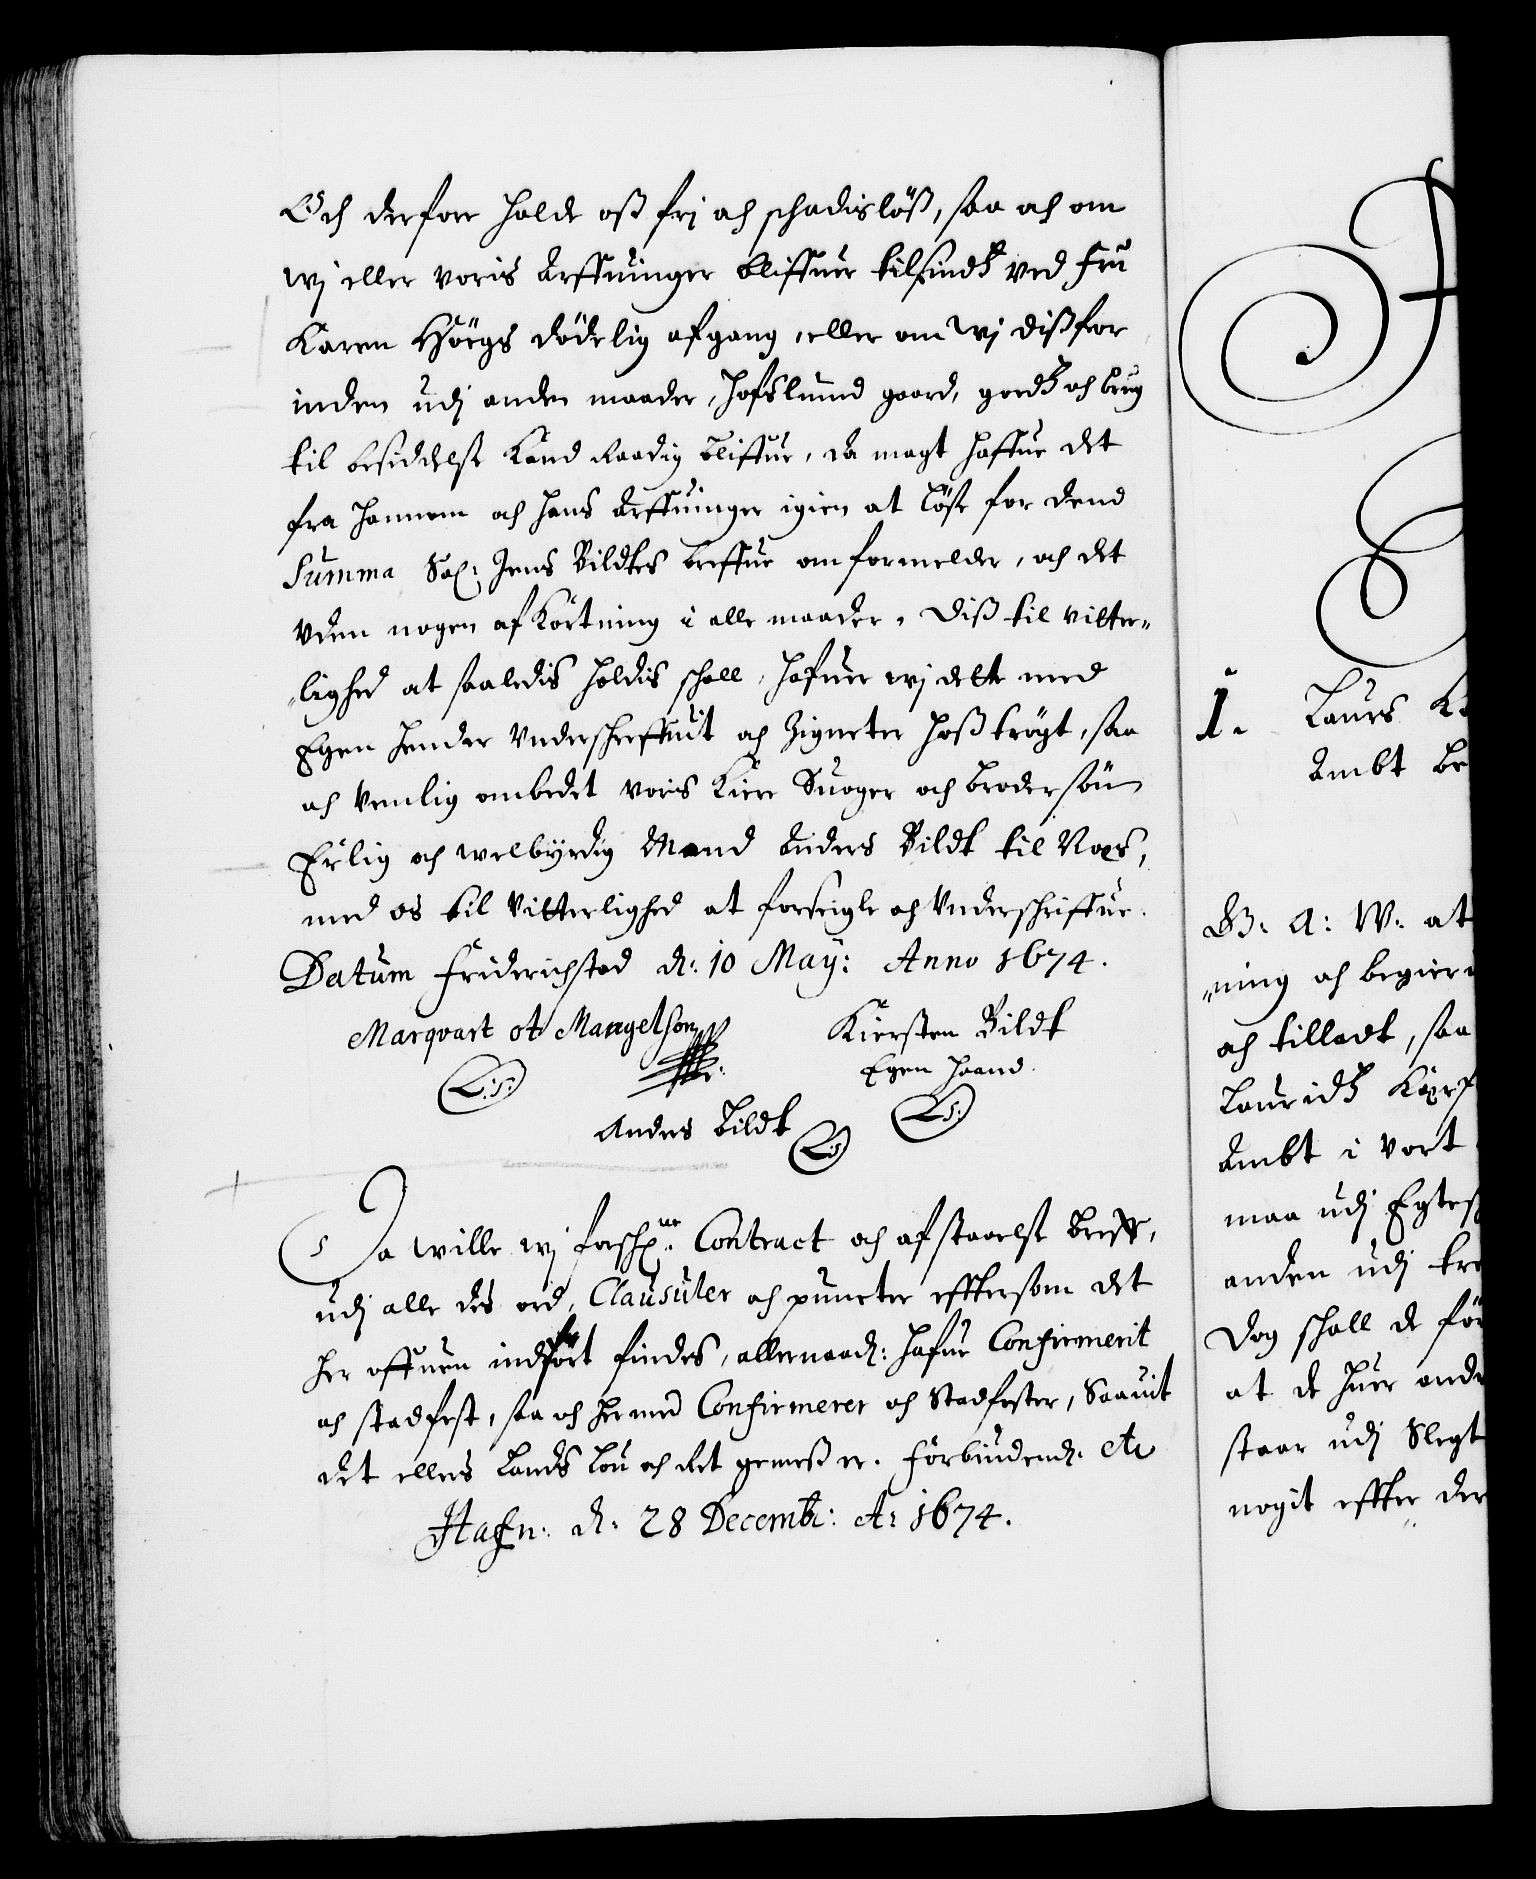 Och derfore holde oss frj och schadisløss, saa och om
wj eller voris Arffuinger bliffuer tilsindtz ved fru
Karen Høegs dødelig afgang, eller om Wj dissfor
inden udj anden maader, Hofslund gaard, godtz och brug
til besiddelse kand raadig bliffue, da magt haffue det
fra hannem och hans Arffuinger igien at løse for dend
Summa Sal: Jens Bildtes breffue omformelder, och det
vden nogen af Kortning i alle maader. Diss til vitter„
„lighed at saaledis holdis schall, hafuer wj dette med
Egen hender vnderschreffuit och Zigneter hoss trøgt, saa
och venlig ombedet voris kiere Suoger och brodersøn
Erlig och welbyrdig Mand Anders Bildt til Næs,
med os til vitterlighed at forseigle och vnderschriffue.
Datum Friderichstad d: 10 May: Anno 1674.
Marqvart ot Mangelsen Kiersten Bildt
L:S: Egen haand.
Anders Bildt L:S: L:S:
Da wille wj forschne: Contract och afstaaelse breff,
udj alle des ord, Clausuler och puncter efftersom det
her offuen indført findes, allernaad: hafue Confirmerit
och stadfest, saa och hermed Confirmerer och Stadfester, Saauit
det ellers Lands Lou och Ret gemess er. Forbiudend: etc
Hafn: d: 28 Decemb: Ao 1674.
1. Laurs
Ambt be
G: A: W: at
„ning och begier
och tilladt, saa
Lauridtz
Ambt i vort
maa udj Egtes
anden udj tre
Dog schall de før
at de huer ande
staar udj Slegt
nogit effter der